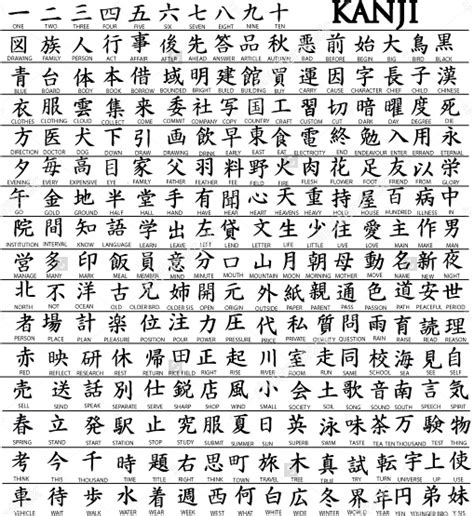 一 二 三 四 五 六 七 八 九 十 KANJI
ONE TWO THREE FOUR FIVE SIX SEVEN EIGHT NINE TEN
図 族 人 行 事 後 先 答 品 秋 悪 前 始 大 鳥 黒
DRAWING FAMILY PERSON AFTER AHEAD ANSWER ARTICLE AUTUMN BAD BEFORE BEGIN BIG BIRD BLACK
青 台 体 本 借 域 明 建 館 買 運 因 字 長 子 漢
BLUE BOARD BODY BOOK BORROW BRIGHT BUILD BUY CAUSE CHARACTER CHIEF CHILD CHINESE
衣 服 雲 集 来 委 社 写 国 工 習 切 暗 曜 度 死
CLOTHES CLOTHING CLOUD COLLECT COME COMMIT COMPANY COPY COUNTRY CRAFT CUT DARK DAY DEGREE DIE
方 医 犬 下 引 画 飲 早 東 食 電 終 勉 入 用 永
DIRECTION DOCTOR DOG DOWN DRAW DRINK EARLY EAST EAT ELECTRICITY END ENDEAVOUR ENTER ERRAND ETERNAL
夕 毎 高 目 家 父 羽 料 野 火 肉 花 足 友 以 学
EVENING EVERY EXPENSIVE EYE FAMILY FATHER FEATHER FEE FIELD FIRE FLESH FLOWER FOOT FRIEND FROM
午 金 地 半 堂 手 有 聞 心 天 重 持 屋 百 病 中
GO GOLD GROUND HALF HALL HAND HAVE HEAR HEART HEAVENS HEAVY HOLD HOUSE HUNDRED ILLNESS IN
院 間 知 語 学 出 左 貸 文 生 少 住 愛 主 作 男
INSTITUTION INTERVAL KNOW LANGUAGE LEARN LEAVE LEFT LEND LETTER LIFE LITTLE LIVE LOVE MAKE MAN
営 多 印 飯 員 意 分 口 山 月 朝 母 動 名 新 夜
MANAGE MANY MARK MEAL MEMBER MIND MINUTE MOUTH MOUNTAIN MOON MORNING MOTHER MOVE NAME NEW NIGHT
北 不 洋 古 兄 姉 開 元 外 紙 親 通 色 道 安 世
NORTH NOT OCEAN OLD OLDER BRO. OLDER SIS. OPEN ORIGIN OUTSIDE PAPER PARENT PASS PASSION PATH PEACEFUL PERIOD
者 場 計 楽 位 注 力 圧 代 私 質 問 雨 育 読 理
PERSON PLACE PLAN PLEASANT POSITION POUR POWER PRESSURE PRICE PRIVATE QUALITY QUESTION RAIN READ REASON
赤 映 研 休 帰 田 正 起 川 室 走 同 校 海 見 自
RED REFLECT RESEARCH REST RETURN RICE FIELD RIGHT RISE RIVER ROOM RUN SAME SCHOOL SEA SEE SELF
売 送 話 別 仕 鋭 店 風 小 会 土 歌 音 南 言 気
SELL SEND SPEAK SEPARATE SERVE SHARP SHOP WIND SMALL SOCIETY SOIL SONG SOUND SOUTH SPEECH SPIRIT
春 立 発 駅 止 究 服 夏 日 英 泳 味 茶 万 験 物
SPRING STAND START STATION STOP STUDY SUMMER SUN SWIM TASTE TEA TEN THOUSAND TEST THING
考 今 千 時 題 右 思 町 旅 木 真 試 転 宇 上 使
THINK THIS THOUSAND TIME TOWN TRAVEL TREE TRUE UP USE
車 待 歩 水 着 週 西 何 白 窓 女 年 円 弟 妹
VEHICLE WAIT WALK WATER WEAR WEEK WEST WHAT WHITE WINDOW WOMAN YEAR YEN